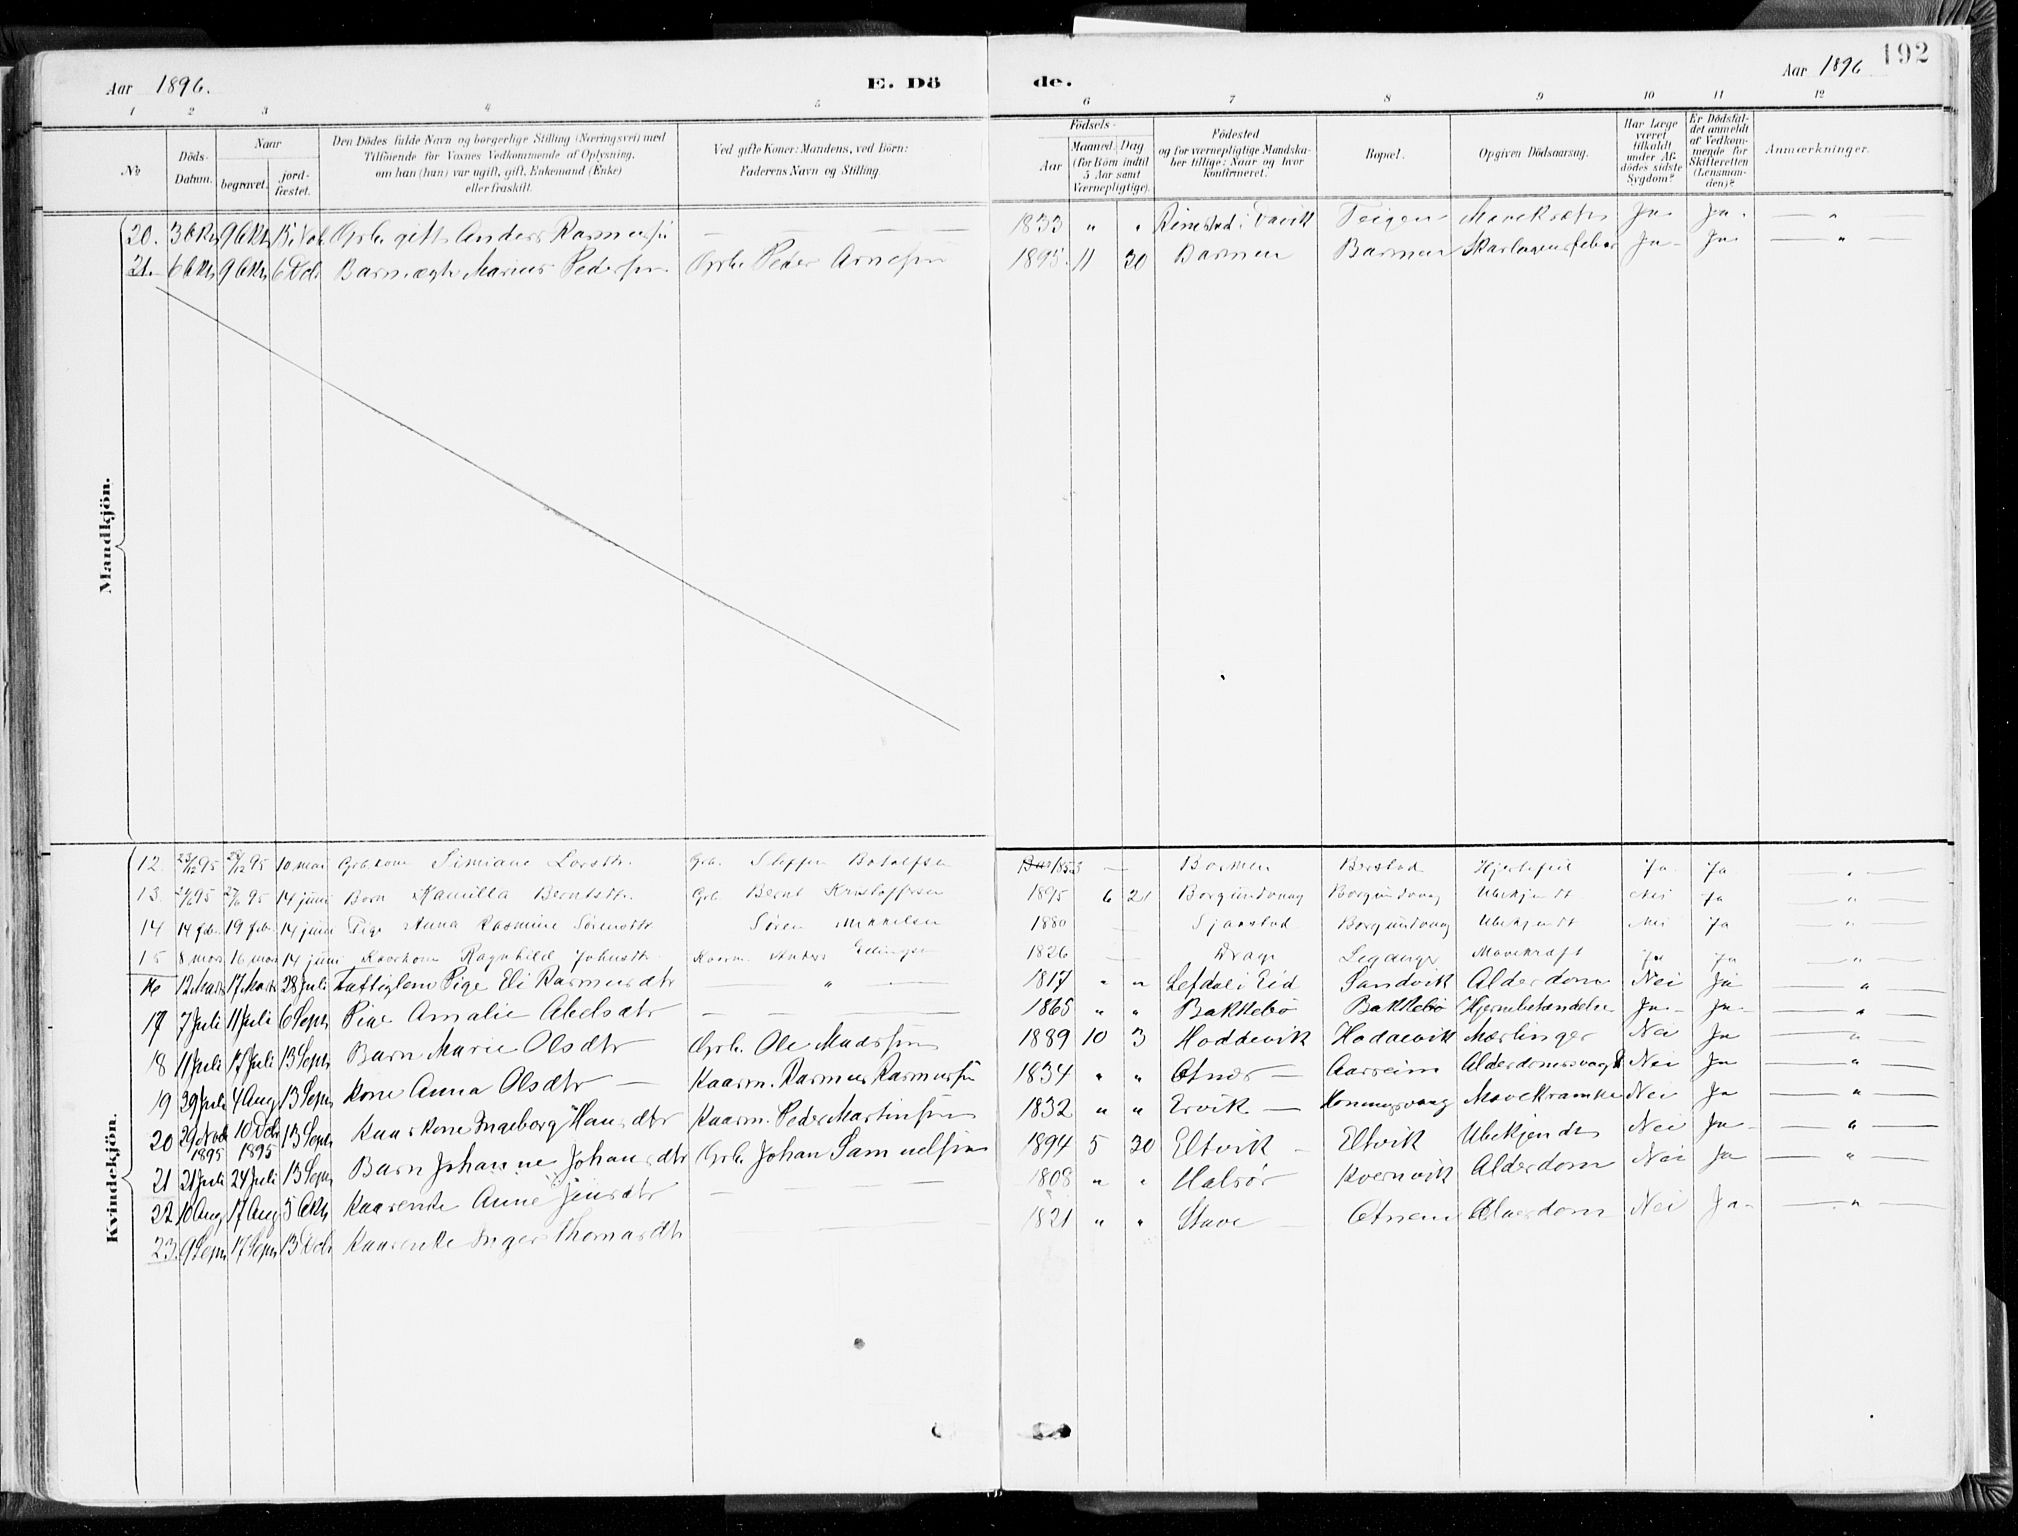 Aar 1896. E. Dö
de. Aar 1896 192
1 2 3 4 5
6 7 8 9 10 11 12
No
Döds-Datum.
Naar
begravet.
jord-fæstet.
Den Dödes fulde Navn og borgerlige Stilling (Næringsvei) med
Tilföiende for Voxnes Vedkommende af Oplysning,
om han (hun) var ugift, gift, Enkemand (Enke)
eller fraskilt.
Ved gifte Koner: Mandens, ved Börn:
Faderens Navn og Stilling.
Födsels-
Aar
Maaned. Dag
(for Börn indtil
5 Aar samt
Værnepligtige).
Födested
og for værnepligtige Mandska-
ber tillige: Naar og hvor
konfirmeret.
Bopæl.
Opgiven Dödsaarsag.
Har Læge
været
tilkaldt
under Af-
dödes sidste
Sygdom?
Er Dödsfal-
det anmeldt
af Vedkom-
mende for
Skifteretten
(Lensman-
den)?
Anmærkninger.
Mandkjön.
20. 3 Okt 9 Okt 15 Nov Grbr. gift Anders Rasmussen — 1833 " " Rimstad i Davik Teigen Mavekræft Ja Ja — " —
21. 6 Okt 9 Okt 6 Dcb Barn Marius Pedersen Grbr. Peder Arnesen 1895 11 30 Barmen Barmen Skarlagensfeber Ja Ja — " —
Kvindekjön.
12 23/12 95 95 10 mai Grb.kone Simiane Larsdtr. Grb. Steffen Botolfsen 1853 — Barmen Berstad Hjertefeil Ja Ja — " —
13 95 95 14 juni Barn Kamilla Berntsdtr. Grb. Bernt Kristoffersen 1895 6 21 Borgundvaag Borgundvaag Ubekjendt Nei Ja — " —
14 14 feb. 19 feb. 14 juni Pige Anna Rasmine Sörensdtr Sören Mikkelsen 1880 — Sjaastad Borgundvaag Ubekjendt Nei Ja — " —
15 8 mars 16 mars 14 juni Kaarkone Ragnhild Johnsdtr Kaarm. Anders Ellingsen 1826 — Drage Leganger Mavekræft Ja Ja — " —
16 12 Marts 17 Marts 28 Juli Fattiglem Pige Eli Rasmusdtr — " — 1817 " " Lefdal i Eid Sandvik Alderdom Nei Ja — " —
17 7 Juli 11 Juli 6 Sept Pige Amalie Abelsdtr — 1865 " " Bakkebø Bakkebø Hjernebetændelse Ja Ja — " —
18 11 Juli 17 Juli 13 Sept Barn Marie Olsdtr Grbr. Ole Madssen 1889 10 3 Hoddevik Hoddevik Mæslinger Nei Ja — " —
19 29 Juli 4 Aug 13 Sept Kone Anna Olsdtr — Kaarm. Rasmus Rasmussen 1834 " " Otnes — Aarseim Alderdomssvagh. Nei Ja — " —
20 29 Nov 1895 10 Dcb 1895 13 Sept Kaarkone Ingeborg Hansdtr Kaarm. Peder Martinsen 1832 " " Ervik — Honningsvaag Mavekrampe Nei Ja — " —
21 21 Juli 24 Juli 13 Sept Barn Johanne Johansdtr Grbr. Johan Samuelsen 1894 5 30 Eltvik — Eltvik Ubekjendt Nei Ja — " —
22 10 Aug 17 Aug 5 Okt Kaarenke Anne Jensdtr — 1808 " " Halsør Kvernvik Alderdom Nei Ja — " —
23. 9 Sept 17 Sept 13 Dcb Kaarenke Inger Thomasdtr — 1821 " " Stave — Otnem Alderdom Nei Ja — " —